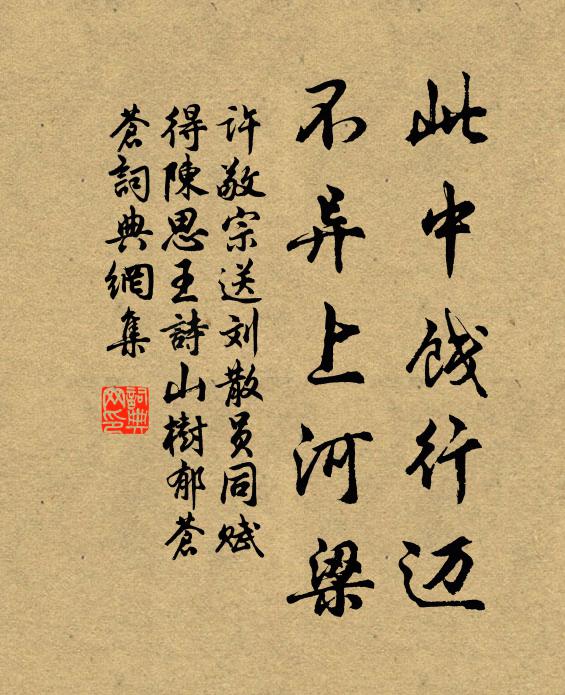 此中饯行迈
不异上河梁
许敬宗送刘散员同赋
得陳思王詩山樹郁蒼
蒼詞典網集
詞典
网印